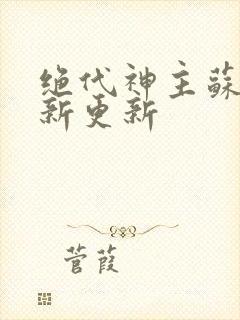 绝代神主蘇
新更新
菅葭